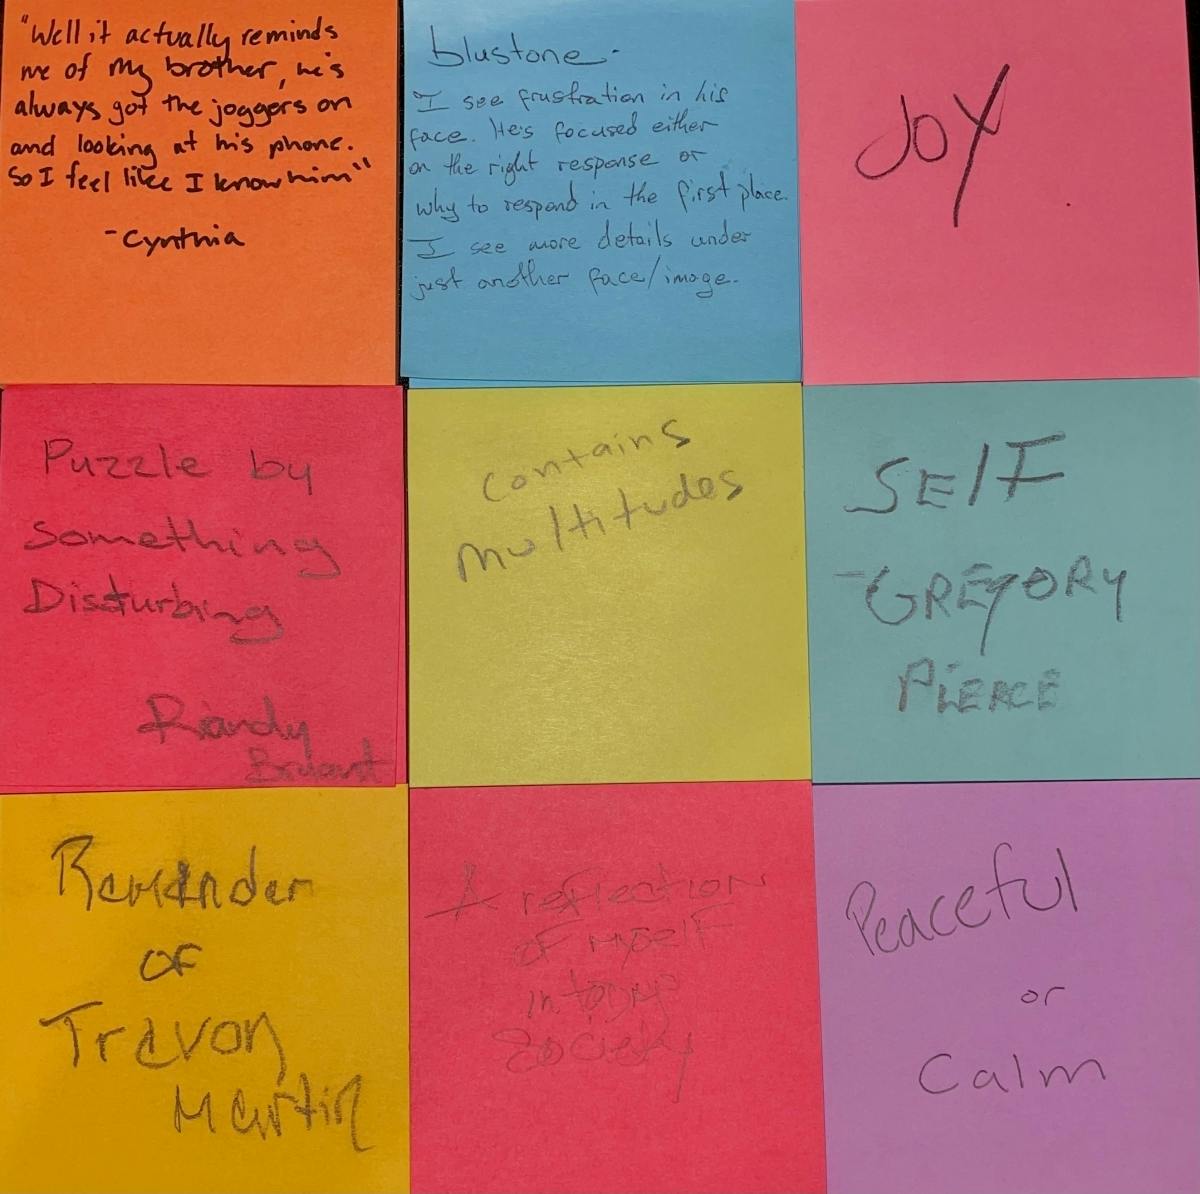 "Well it actually reminds
me of my brother, he's
always got the joggers on
and looking at his phone.
So I feel like I know him"
-Cynthia
blustone-
I see frustration in his
face. He's focused either
on the right response or
why to respond in the first place.
I see more details under
just another face/image.
JOY
Puzzle by
Something
Disturbing
Randy
Bryant
Contains
Multitudes
SElF
-GREGORY
PiERCE
Remainder
OF
Travon
Martin
A reflection
of myself
in todays
Society
Peaceful
or
Calm